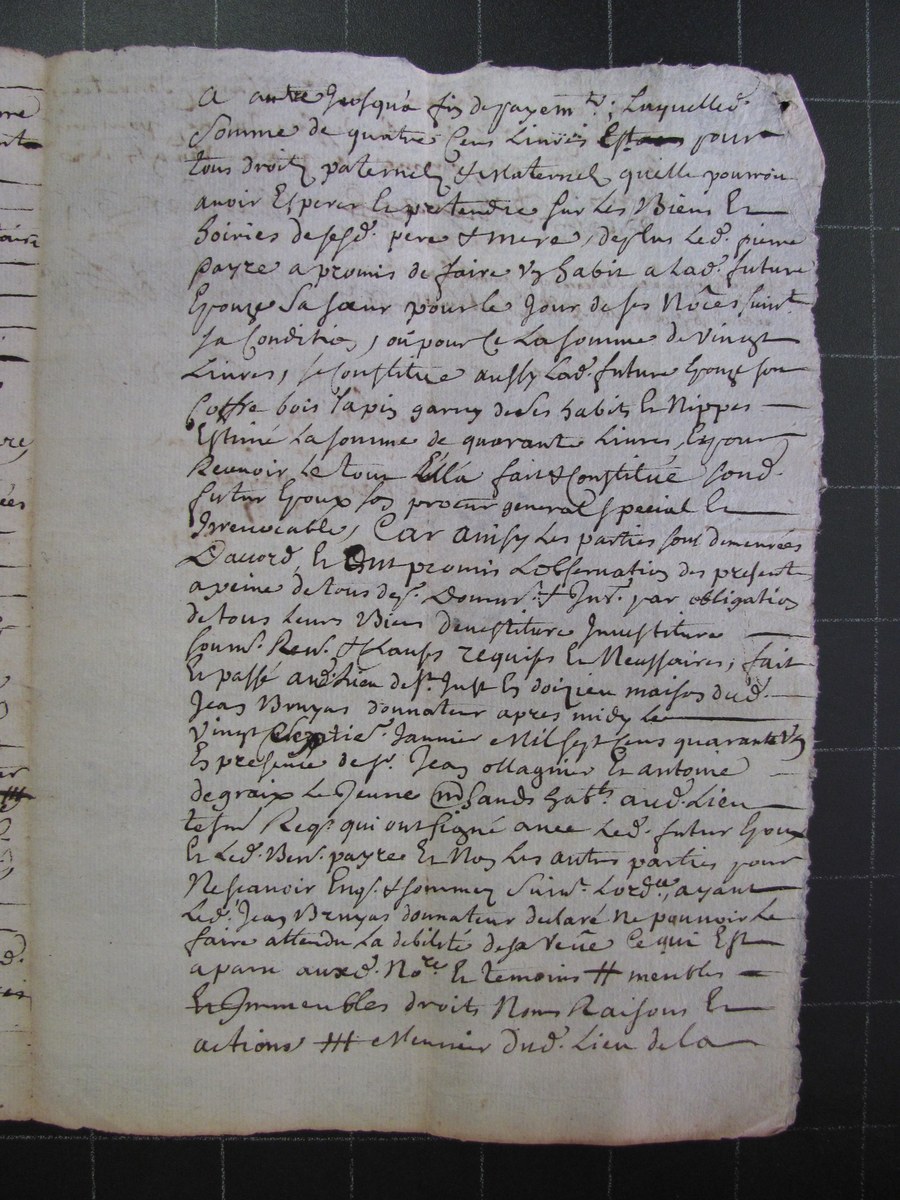 a autre Jusqu'a fin de payemt; Laquelle d.
Somme de quatre Cens Livres Est pour
tous droits paternels & Maternels quelle pourroit
avoir Esperer Et pretendre sur Les Biens Et
hoiries de sesd. pere & mere, de plus Led. pierre
payre a promis de faire un habit a Lad. future
Epouze Sa sœur pour le Jour de ses Noces suivt
sa Condition, ou pour Ce La somme de vingt
Livres, se Constitue aussy Lad. future Epouze son
Coffre bois sapin garny de ses habits Et Nippes
Estimé La somme de quarante Livres, Et pour
Recevoir Le tout Ella fait & Constitué sond.
futur Epoux son procur general special Et
Irrevocable, Car ainsy Les parties sont demeurées
Daccord, Et Ont promis Lobservation des presentes
a peine de tous dep. Domm. & Int. par obligation
de tous Leurs Biens devestiture Investiture
soum. Ren. & Clauses requises Et Necessaires, fait
Et passé aud. Lieu de St. Just En doizieu maison dud.
Jean Bruyas donnateur apres midy Le
Vingt Septie. Janvier Mil sept Cens quarante Un
En presence de sr. Jean ollagnier Et antoine
degraix Le Jeune mds habts aud. Lieu
tesm. Reqs. qui ont signé avec Led. futur Epoux
Et Led. Ben. payre Et Non Les autres parties pour
Ne scavoir Enqs. & sommez suivt. Lordce, ayant
Led. Jean Bruyas donnateur declaré Ne pouvoir Le
faire attendu La debilité de sa veüe Ce qui Est
aparu auxd. Nore Et temoins # meubles
Et Immeubles droits Noms Raisons Et
actions ## Meunier Dud. Lieu de la